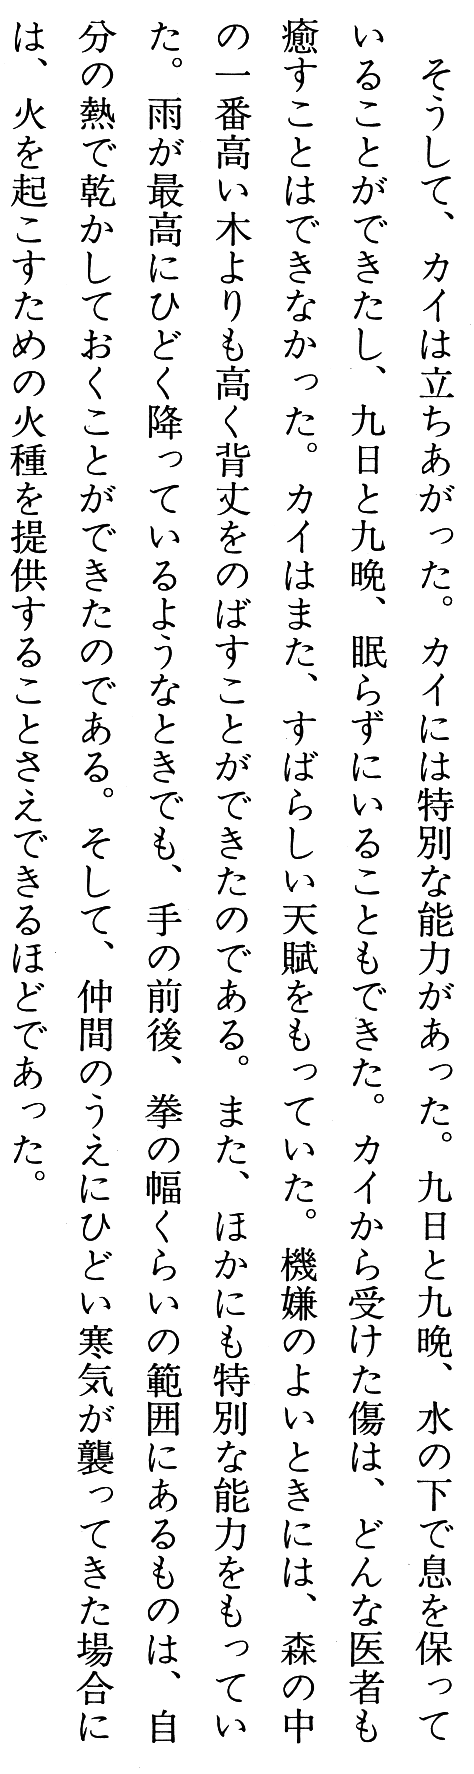 そうして、カイは立ちあがった。カイには特別な能力があった。九日と九晩、水の下で息を保って
いることができたし、九日と九晩、眠らずにいることもできた。カイから受けた傷は、どんな医者も
癒すことはできなかった。カイはまた、すばらしい天賦をもっていた。機嫌のよいときには、森の中
の一番高い木よりも高く背丈をのばすことができたのである。また、ほかにも特別な能力をもってい
た。雨が最高にひどく降っているようなときでも、手の前後、拳の幅くらいの範囲にあるものは、自
分の熱で乾かしておくことができたのである。そして、仲間のうえにひどい寒気が襲ってきた場合に
は、火を起こすための火種を提供することさえできるほどであった。